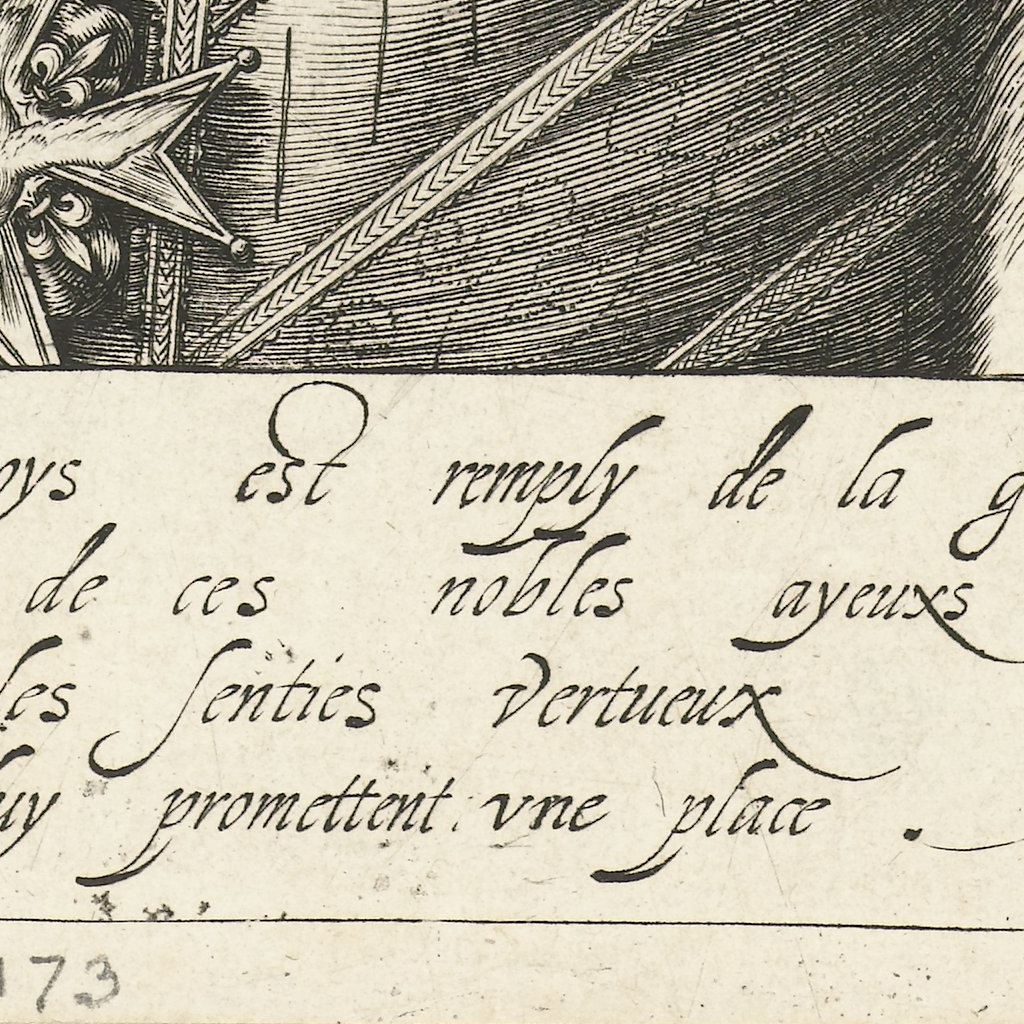 oys est remply de la g
de ces nobles ayeuxs
les senties vertueux
uy promettent vne place .
173